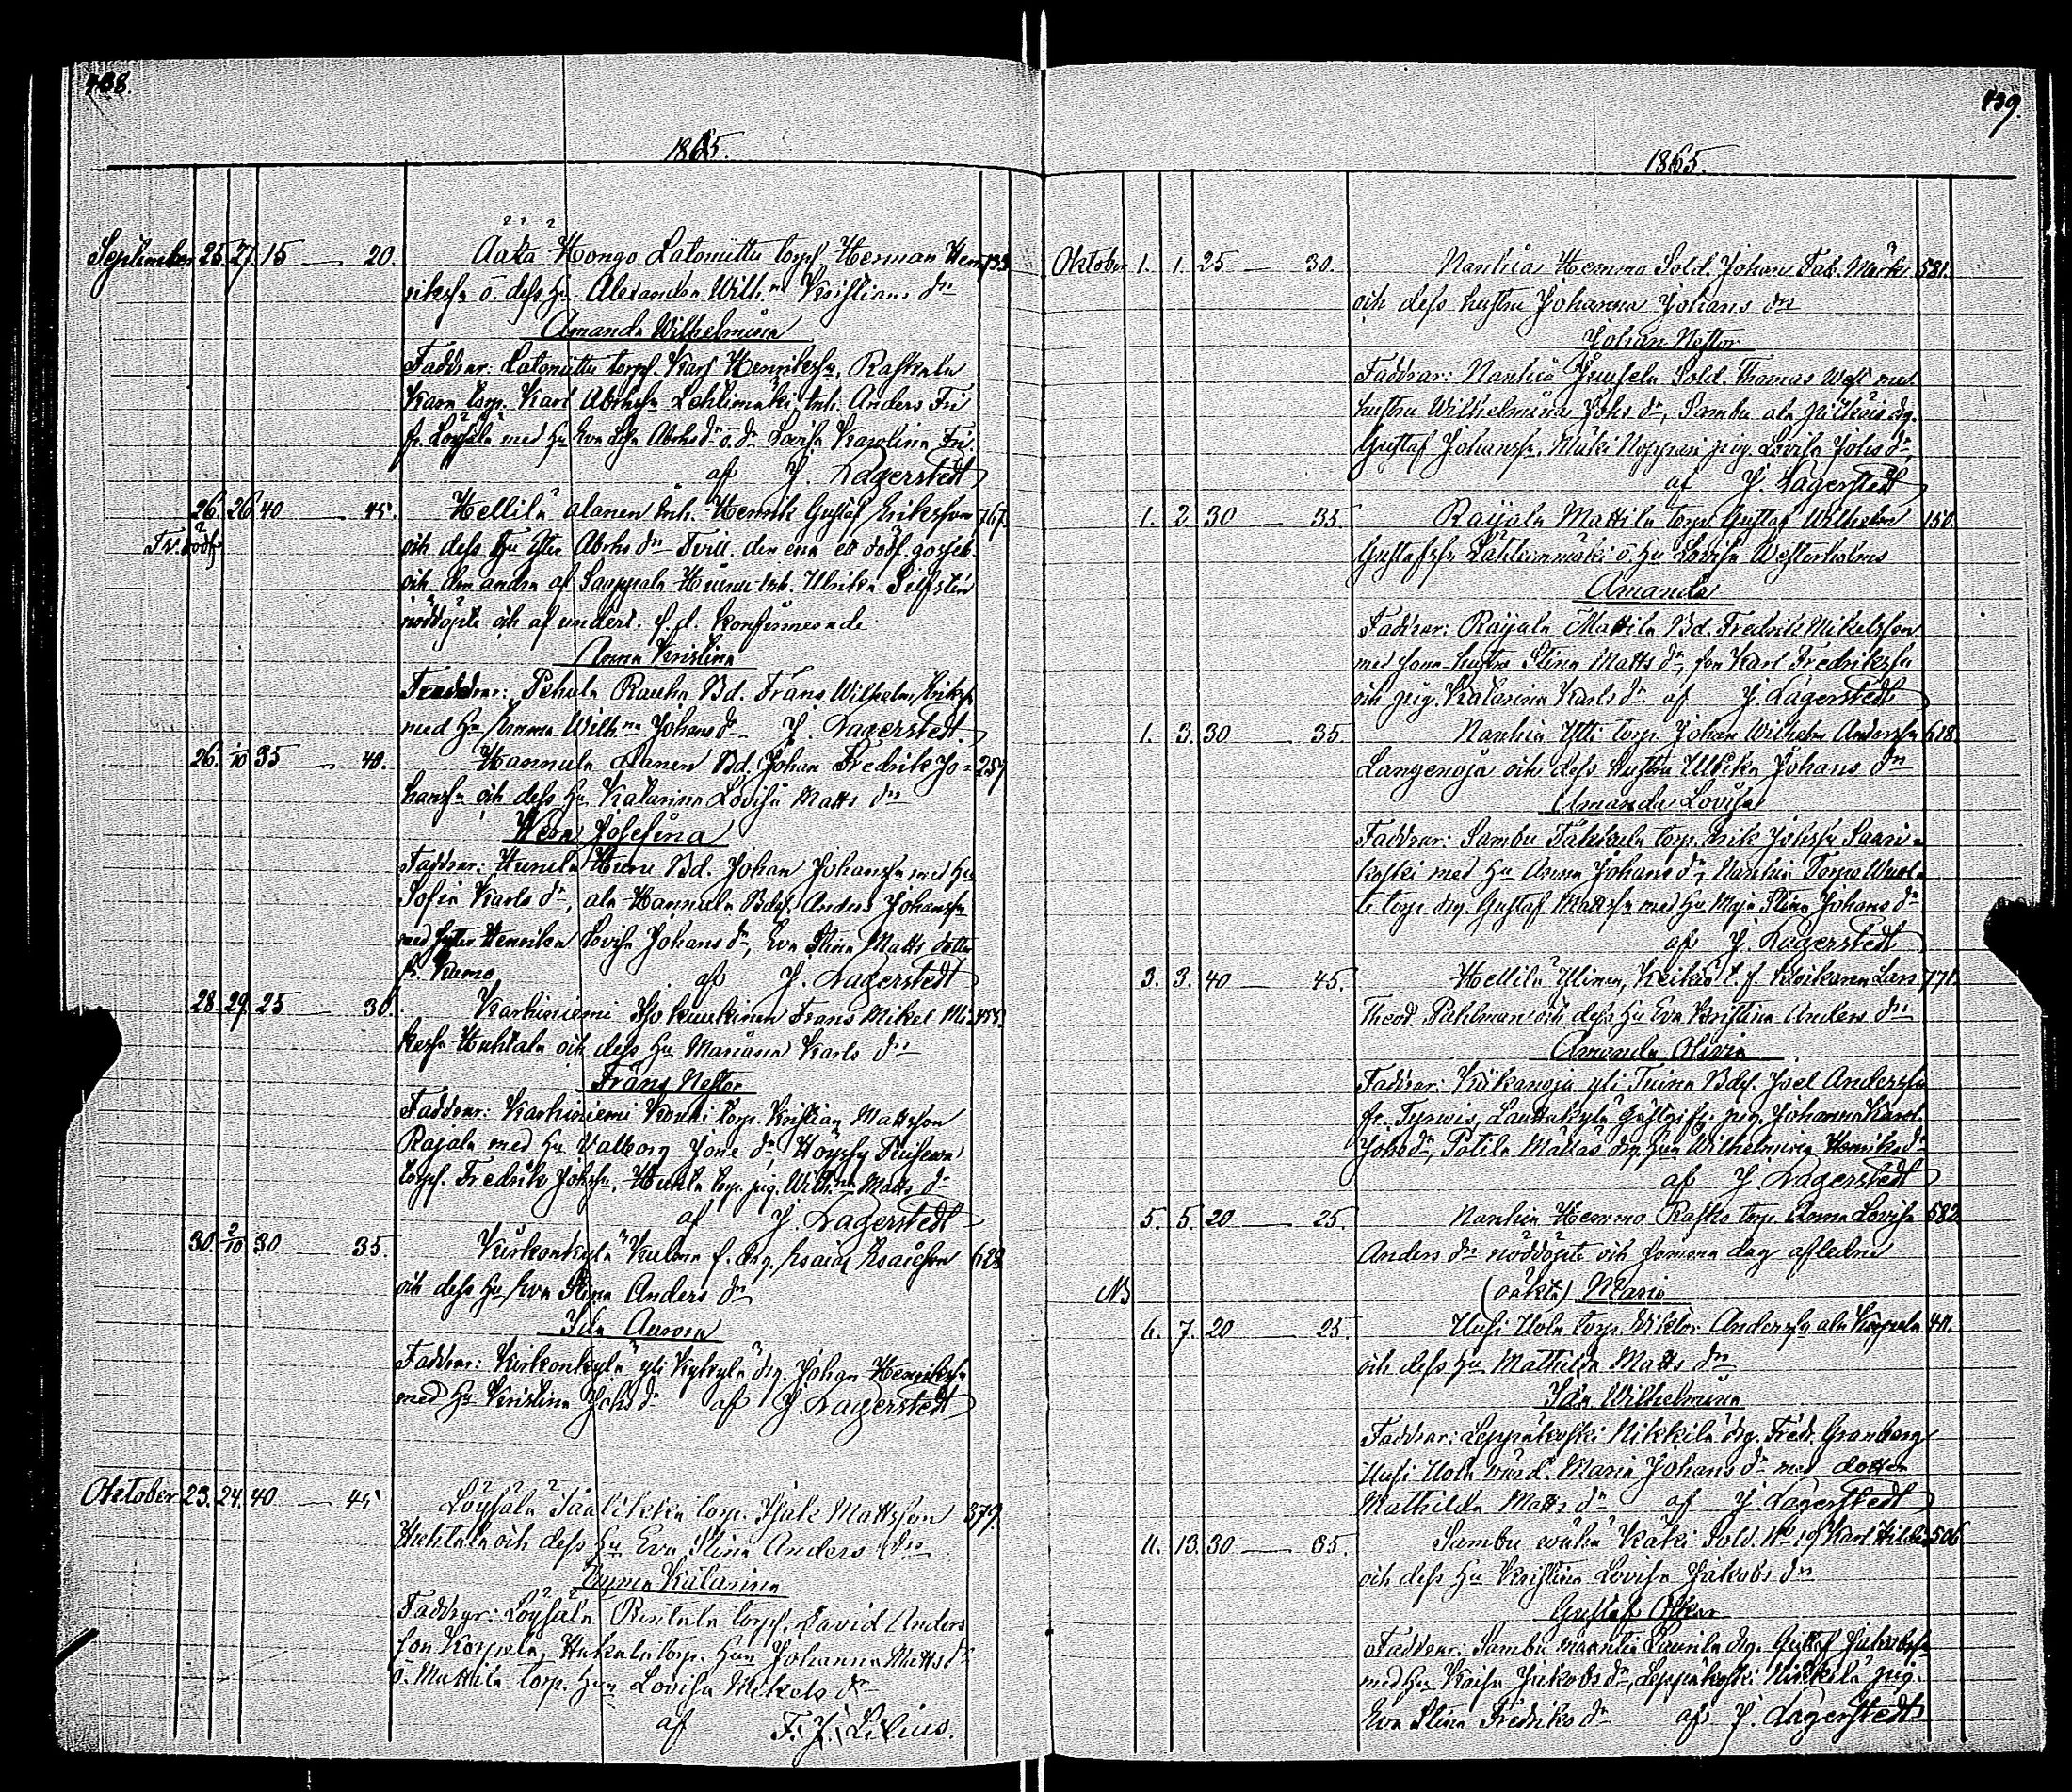 438.
1865.
September 25. 27. 15 — 20. Äätä Hongo Latomittu torp. Herman Hen- 133
riksn o. dess Hu. Alexandra Wilh:na Kristians dr
Amanda Wilhelmina
Faddrar: Latomittu torp. Karl Henriksn, Raskala
torp. Karl Abrhsn Lehtimäki, Inh. Anders Fri
fr. Löysälä med Hu Eva Lisa Abrhs dr o. dr Lovisa Karolina Fri.
af J. Lagerstedt
26. 26. 40 — 45. Hellilä alanen Inh. Henrik Gustaf Eriksson 767.
och dess Hu Ester Abrhs dr Tvill. den ena ett dödf. gosseb.
och den andra af Sauppala Inh. Ulrika Silfstén
nöddöpte och af undert. s. d. konfirmerade
Anna Kristina
Faddrar: Pehula Rauha Bd. Frans Wilhelm Eriksn
med Hu Emma Wilh:na Johans dr J. Lagerstedt
26. 1/10 35 — 40. Hannula alanen Bd. Johan Fredrik Jo- 257
hansn och dess Hu Katarina Lovisa Matts dr
Wera Josefina
Faddrar: Hunula Bd. Johan Johansn med Hu
Sofia Karls dr, ala Hannula Bdes. Anders Johansn
med syster Henrika Lovisa Johans dr, Eva Stina Matts dotter
fr. Kumo af J. Lagerstedt
28. 29. 25 — 30. Karhiniemi Iso Kuukinen Frans Mikel Mi- 455.
kelsn Huhtala och dess Hu Mariana Karls dr
Frans Nestor
Faddrar: Karhiniemi Koski torp. Kristian Mattsson
Rajala med Hu Valborg Jone dr,
torps. Fredrik Johsn, Huhta torp. pig. Wilh:na Matts dr
af J. Lagerstedt
30. 2/10 30 — 35. Kirkonkylä Kulma f. drg. Esaias Esaiesson 623
och dess Hu Eva Stina Anders dr
Ida Aurora
Faddrar: Kirkonkylä yli Kylä drg. Johan Henriksn
med Hu Kristina Johs dr af J. Lagerstedt
Oktober 23. 24. 40 — 45 Löysälä Täälikkä torp. Isak Mattsson 379.
Huhtala och dess Hu Eva Stina Anders dr
Katarina
Faddrar: Löysälä Rintala torps. David Anders
son Korpela, Hakala torp. Hun Johanna Matts dr
o. Mattila torp. Hun Lovisa Mikels dr
af F. J. Lilius.
439.
1865.
Oktober 1. 1. 25 — 30. Nanhia Hemmo Sold. Johan Fab. Mörk 581.
och dess hustru Johanna Johans dr
Johan Nestor
Faddrar: Nanhia Junsela Sold. Thomas Wass med
hustru Wilhelmina Johs dr, Sambu ala drg.
Gustaf Johansn, pig. Lovisa Johs dr,
af J. Lagerstedt
1. 2. 30 — 35 Raijala Mattila torp. Gustaf Wilhelm 150.
Gustafsn Lähteenmäki o. Hu Lovisa Westerholms
Amanda
Faddrar: Raijala Mattila Bd. Fredrik Mikelsson
med hustru Stina Matts dr, son Karl Fredriksn
och pig. Katarina Karls dr af J. Lagerstedt
1. 3. 30 — 35. Nanhia torp. Johan Wilhelm Andersn 618.
Langenoja och dess hustru Ulrika Johans dr
Amanda Lovisa
Faddrar: Sambu torp. Erik Johsn Saari-
koski med Hu Anna Johans dr, Nanhia
torp. drg. Gustaf Mattsn med Hu Maja Stina Johans dr
af J. Lagerstedt
3. 3. 40 — 45. Hellilä Ylinen, Keikyö f. f. Klockaren Lars 771.
Theod. Pihlman och dess Hu Eva Kristina Anders dr
Amanda Olivia
Faddrar: Kiikanoja yli Tuina Bdes. Joel Andersn
fr. Tyrwis, Lauttakylä Gästgifv. pig. Johanna Karol.
Johs dr, Potila drg. Hun Wilhelmina Henriks dr
af J. Lagerstedt
5. 5. 20 — 25. Nanhia Hemmo torp. Anna Lovisa 582.
Anders dr nöddöpte och samma dag afledne
NB (oäkta) Maria
6. 7. 20 — 25. Uusi Uola torp. Wiktor Andersn ala Korpela 411.
och dess Hu Mathilda Matts dr
Ida Wilhelmina
Faddrar: Leppäkoski Nikkilä drg. Fredr. Granberg
Uusi Uola Maria Johans dr med dotter
Mathilda Matts dr af J. Lagerstedt
11. 13. 30 — 35. Sambu Käki Sold. No 19 Karl 506
och dess Hu Kristina Lovisa Jakobs dr
Gustaf Oskar
Faddrar: Sambu Laurila drg. Gustaf Jakobsn
med Hu Kaisa Jakobs dr, Leppäkoski Nikkilä pig.
Eva Stina Fredriks dr af J. Lagerstedt